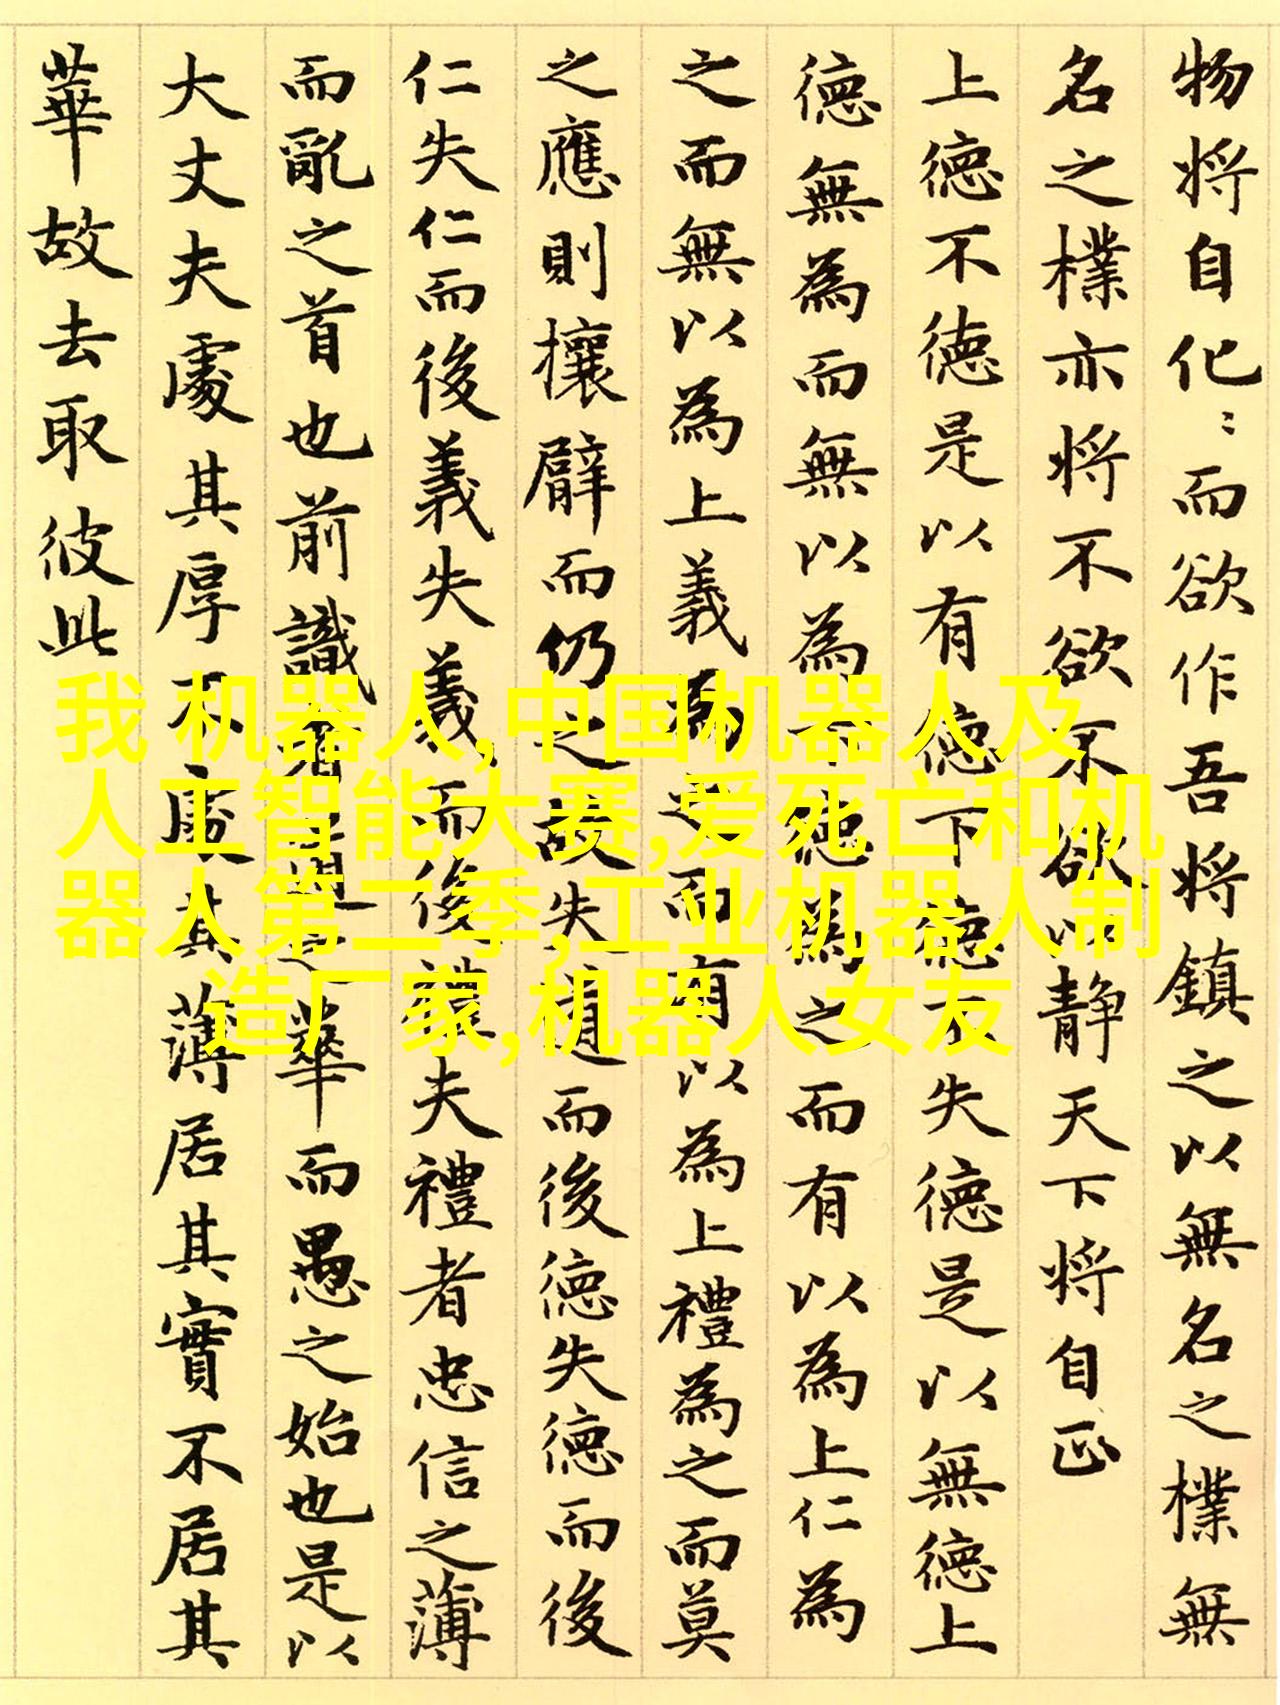 物将自化〻而欲作吾将鎮之以無名之樸無
名之樸亦将不欲不欲以静天下将自正
上德不德是以有德下德不失德是以無德上
德無為而無以為下德為之而有以為上仁為
之而無以為上義為之而有以為上禮為之而莫
之應則攘臂而仍之故失道而後德失德而後
仁失仁而後義失義而後禮夫禮者忠信之薄
而亂之首也前識者道之華而愚之始也是以
大丈夫處其厚不處其薄居其實不居其
華故去取彼此
我 机器人,中国机器人及
人工智能大赛,爱死亡和机
器人第二季,工业机器人制
造厂家,机器人女友